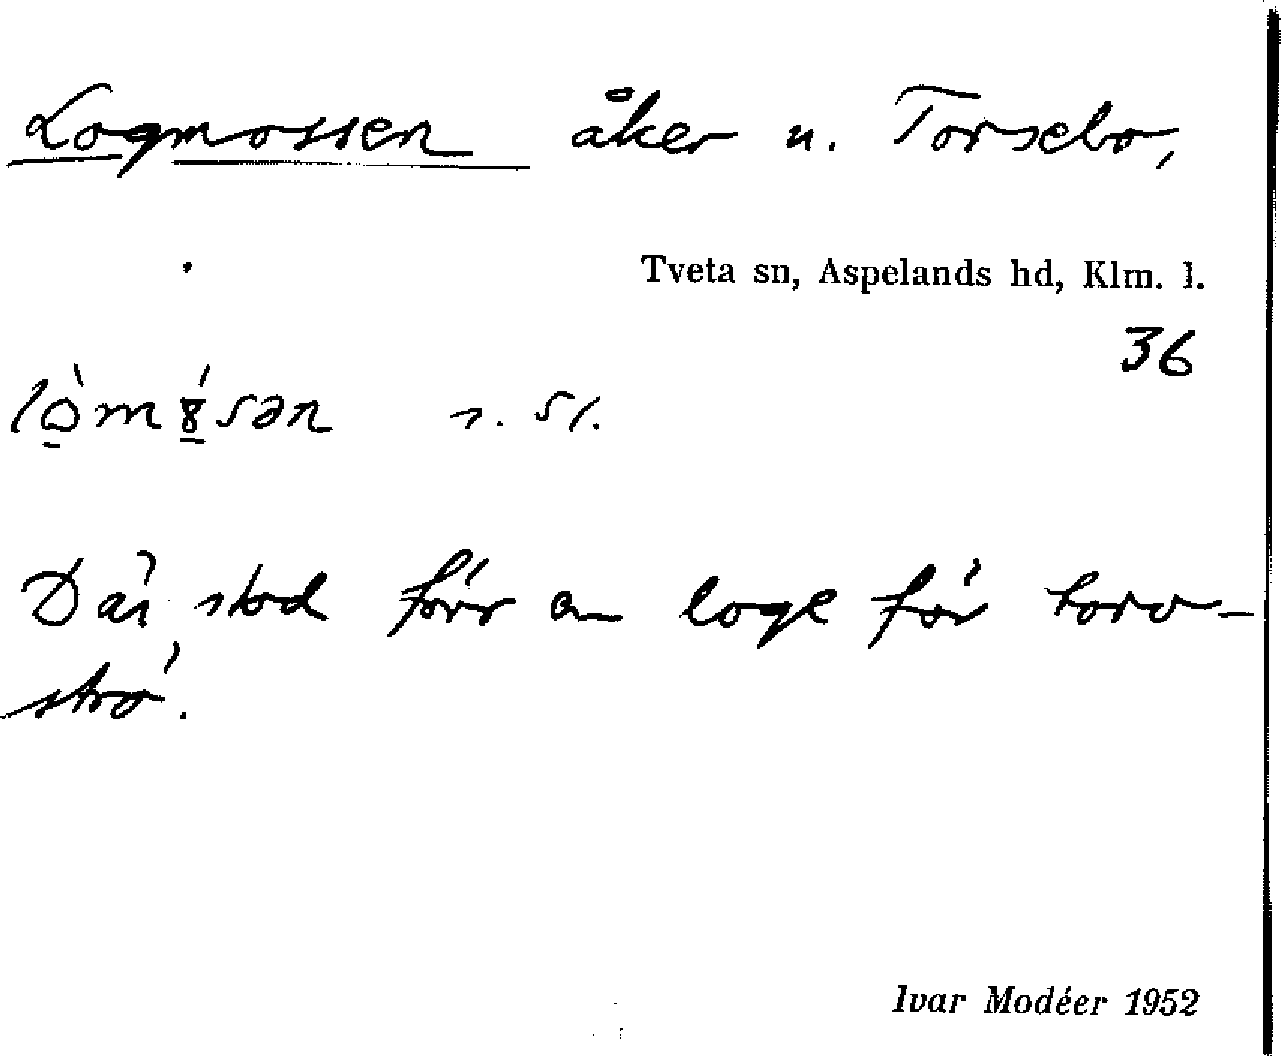 Logmossen åker u. Torsebo,
Tveta sn, Aspelands hd, Klm. l.
36
Där stod förr en loge för torv-
strö.
Ivar Modéer 1952